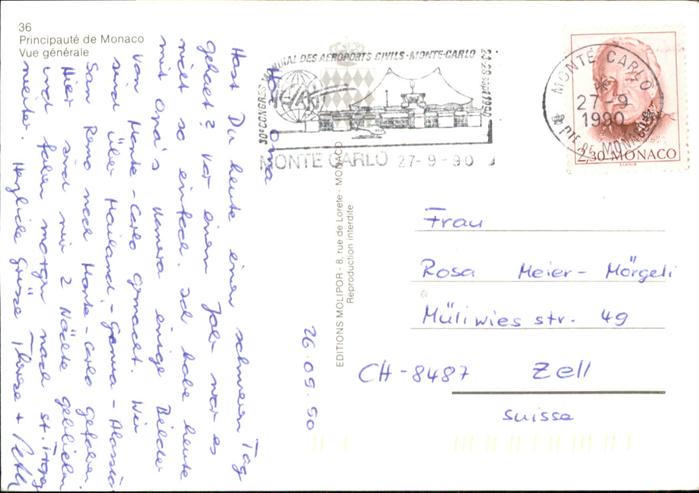 36
Principauté de Monaco
Vue générale
30e CONGRES MONDIAL DES AEROPORTS CIVILS - MONTE-CARLO
MONTE CARLO 27-9-90
MONTE CARLO
27-9
1990
PTE DE MONACO
2,30 MONACO
Hoi Oma
Hast Du heute einen schweren Tag
gehabt? Vor einem Jahr war es
nicht so einfach. Ich habe heute
mit Opa's Kamera einige Bilder
von Monte-Carlo gemacht. Wir
sind über Mailand - Genua - Alassio
San Remo nach Monte-Carlo gefahren.
Hier sind wir 2 Nächte geblieben
und fahren morgen nach St. Tropez
weiter. Herzliche Grüsse
26.09.90
EDITIONS MOLIPOR - 8, rue de Lorete - MONACO
Reproduction interdite
Frau
Rosa Meier-Mörgeli
Müliwies str. 49
CH-8487 Zell
Suisse